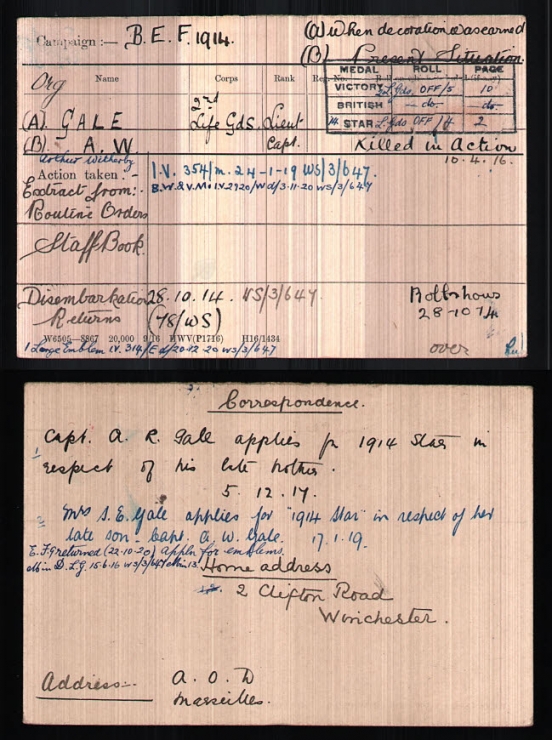 Campaign :— B.E.F. 1914.
(A) When decoration was earned
(B) Present Situation.
Name Corps Rank
MEDAL ROLL PAGE
VICTORY L.Gds. OFF/5 10
BRITISH —do.— —do—
14 STAR L.Gds OFF/4 2
Org
(A). GALE 2nd Life Gds. Lieut
(B). A. W Capt. Killed in Action
10.4.16.
Arthur Witherby
Action taken :- I.V. 354/M. 24-1-19 WS/3/647.
Extract from:- B.W.&V.M. I.V. 2920/Wd/3-11-20 WS/3/647
Routine Orders
Staff Book.
Disembarkation 28.10.14. WS/3/647.
Returns (78/WS)
28-10 14
W6505—8867 20,000 9/16 HWV(P1716) H16/1434
over
1 Large Emblem IV. 314/E d/20-12-20 WS/3/647
Correspondence.
1 Capt. A. R. Gale applies for 1914 Star in
respect of his late brother.
5. 12. 17.
2 Mrs S. E. Gale applies for "1914 Star" in respect of her
late son Capt. A. W. Gale. 17.1.19.
E.F. 9 returned (22-10-20) Appln for emblems.
Home address
2 Clifton Road
Winchester.
Address:-. A. O. D
Marseilles.